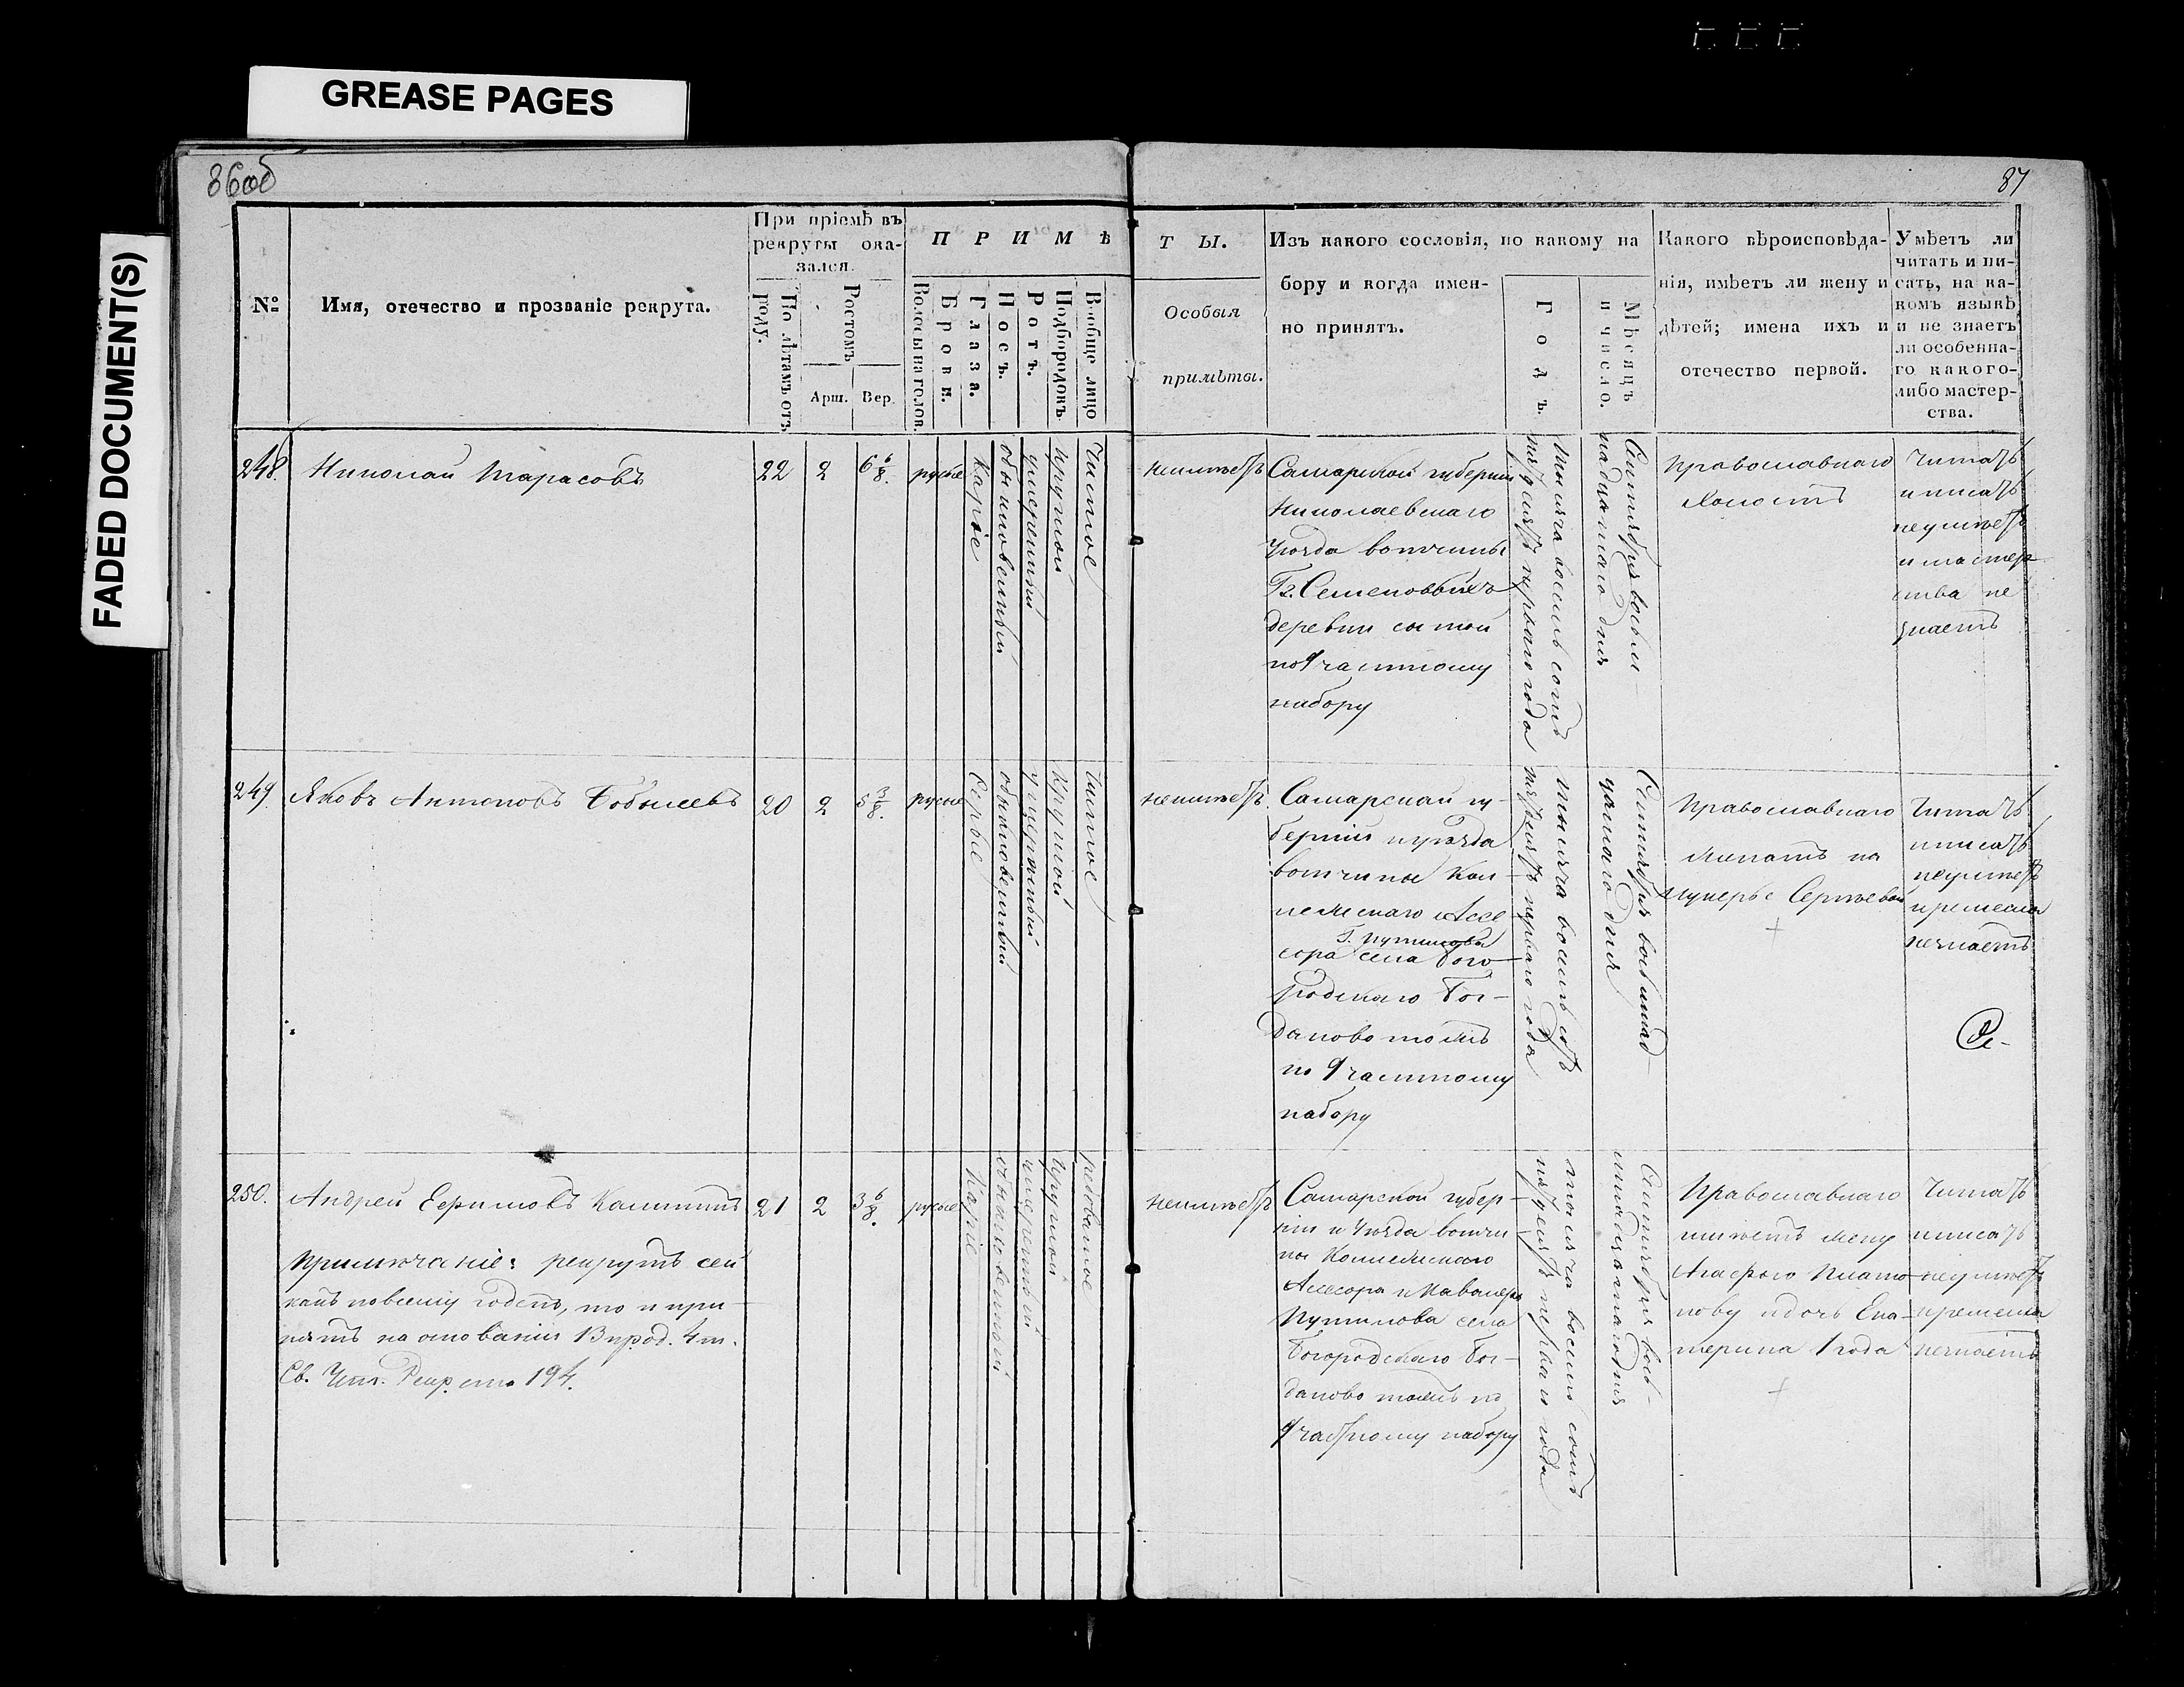 GREASE PAGES
FADED DOCUMENT(S)
86об
87
№
Имя, отечество и прозваніе рекрута.
При пріемѣ въ
рекруты ока-
зался.
По лѣтамъ отъ
роду.
Ростомъ
Арш.
Вер.
ПРИМѢ
Волосы на голов.
Брови.
Глаза.
Носъ.
Ротъ.
Подбородокъ
Вообще лицо
ТЫ.
Особыя
примѣты.
Изъ какого сословія, по какому на
бору и когда имен-
но принятъ.
Годъ.
Мѣсяцъ
и число.
Какого вѣроисповѣда-
нія, имѣетъ ли жену и
дѣтей; имена ихъ и
отечество первой.
Умѣетъ ли
читать и пи-
сать, на ка-
комъ языкѣ
и не знаетъ
ли особенна-
го какого-
либо мастер-
ства.
248.
Николай Тарасовъ
22
2
6 6/8.
русые
Каріе
обыкновенный
умеренный
круглой
Чистое
неимѣетъ
Самарской губерніи
Николаевскаго
Уѣзда вотчины
Гг. Семеновыхъ
деревни
по 9 частному
набору
тысяча восемь сотъ
пятдесятъ перваго года
Сентября восем-
надцатаго дня
Православнаго
Холостъ
Читать
и писать
неумѣетъ
и мастер
ства не
знаетъ
249.
Яковъ Антоновъ Бобылевъ
20
2
5 3/8.
русые
Серые
обыкновенный
умеренный
Круглой
Чистое
неимѣетъ
Самарской гу-
берніи и уѣзда
вотчины Кол-
лежскаго Асе
Г. Путилова
сора села Бого-
родскаго Бог-
даново тожъ
по 9 частному
набору
тысяча восемь сотъ
пятдесятъ перваго года
Сентября восемнад-
цатаго дня
Православнаго
Женатъ на
Лукерье Сергѣевой
Читать
и писать
неумѣетъ
и ремесла
незнаетъ
250.
Андрей Ефимовъ
21
2
3 6/8.
русые
Каріе
обыкновенный
умеренный
круглой
рябоватое
Примѣчаніе: рекрутъ сей
какъ по всему годенъ, то и при-
нятъ на основаніи 13 прод. 4 т.
Св. Уст. Рекр. ст. 194.
неимѣетъ
Самарской губер-
ніи и Уѣзда вотчи
ны Коллежскаго
Асесора и Кавалера
Путилова села
Богородскаго Бог-
даново тожъ по
9 частному набору
тысяча восемь сотъ
пятдесятъ перваго года
Сентября восем-
надцатаго дня
Православнаго
имѣетъ жену
Агафью Плато-
нову и дочь Ека-
терина 1 года
Читать
и писать
неумѣетъ
и ремесла
незнаетъ